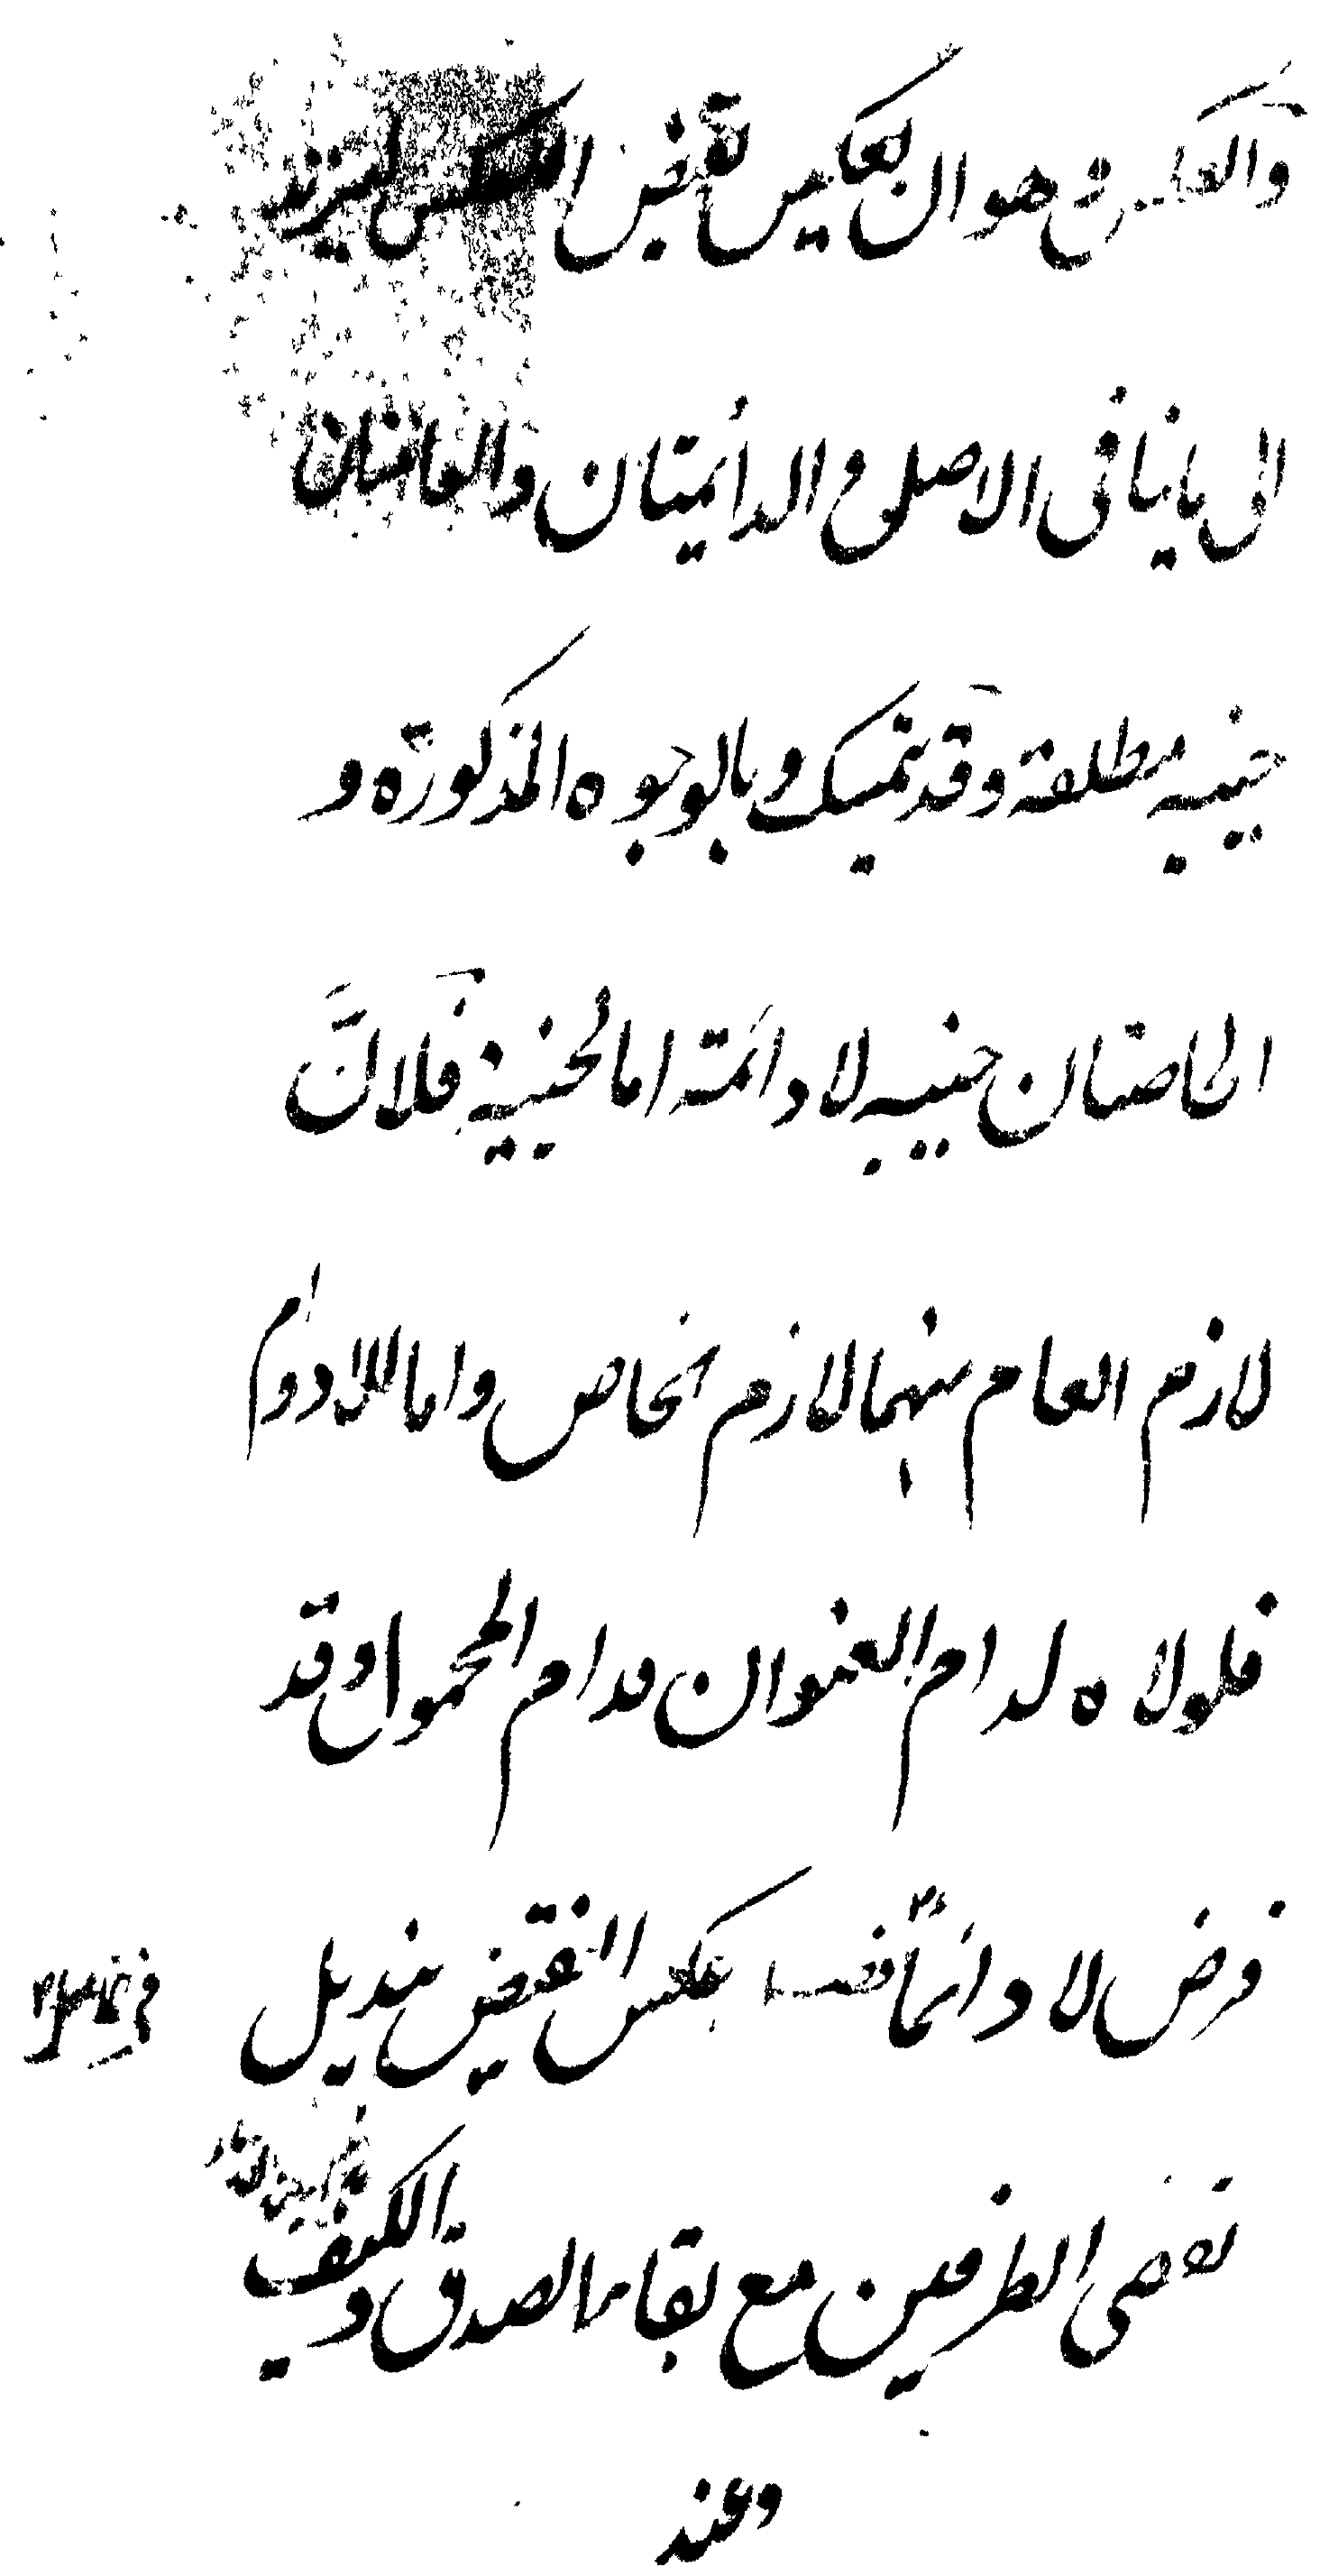 والعكس و هو ان يعكس نقيض العكس ليرتد
الى ما ينافى الاصل و الدائمتان والعامتان
حينيه مطلقة وقد يتمسك بالوجوه المذكورة و
الخاصتان حينيه لا دائمة اما الحينية فلانّ
لازم العام منهما لازم الخاص واما اللا دوام
فلولاه لدام العنوان فدام المحمول و قد
فرض لا دائما فصل عكس النقيض تبديل
نقيضى الطرفين مع بقاء الصدق و الكيف
وعند